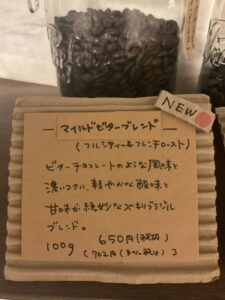 NEW
— マイルドビターブレンド —
(フルシティー&フレンチロースト)
ビターチョコレートのような風味と
濃いコクに、軽やかな酸味と
甘味が絶妙な ブラジル
ブレンド。
100g 650円(税抜)
[702円( 税込)]